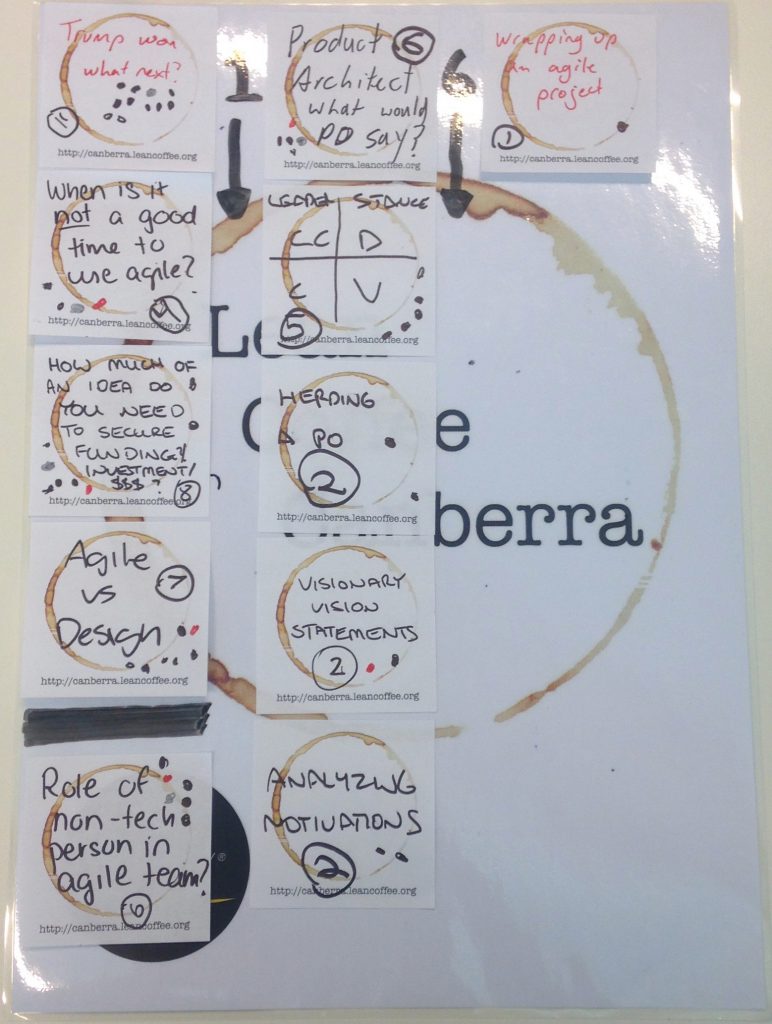 Trump won
what next?
11
http://canberra.leancoffee.org
When is it
not a good
time to
use agile?
http://canberra.leancoffee.org
HOW MUCH OF
AN IDEA DO
YOU NEED
TO SECURE
FUNDING?/
INVESTMENT/
$$$ ?
8
http://canberra.leancoffee.org
Agile
vs
7
Design
http://canberra.leancoffee.org
Role of
non-tech
person in
agile team?
6
http://canberra.leancoffee.org
1
Product 6
Architect
what would
PO say?
http://canberra.leancoffee.org
LEADER STANCE
CC D
C V
5
http://canberra.leancoffee.org
HERDING
A PO
2
http://canberra.leancoffee.org
VISIONARY
VISION
STATEMENTS
2
http://canberra.leancoffee.org
ANALYZING
MOTIVATIONS
2
http://canberra.leancoffee.org
6
Wrapping up
an agile
project
1
http://canberra.leancoffee.org
Lean
C e
berra
®